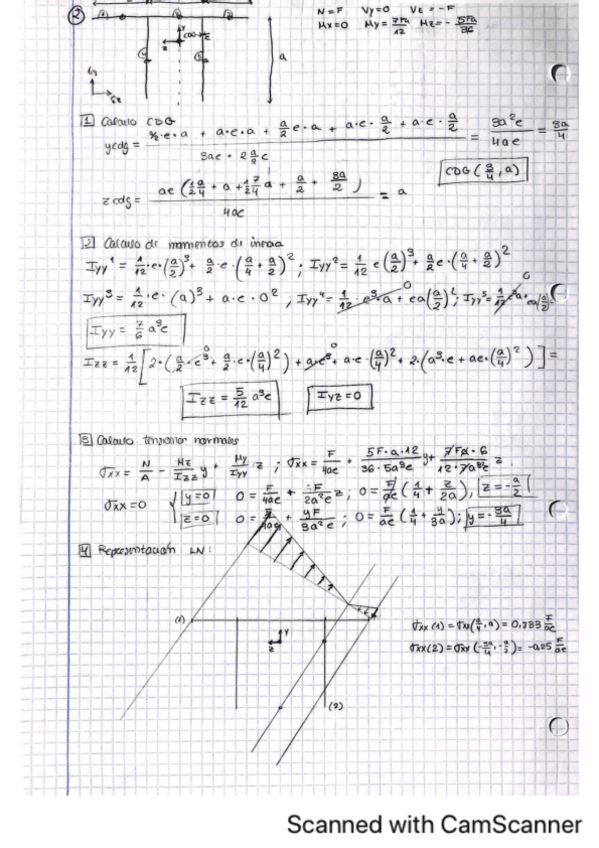 ②
N=F Vy=0 Vz=-F
Mx=0 My=7Fa/12 Mz=-5Fa/36
a
1 Calculo CDG
ycdg = (a/2·e·a + a·e·a + a/2 e·a + a·e·a/2 + a·e·a/2) / (3ae + 2 a/2 e) = 3a²e/4ae = 3a/4
CDG (3/4, a)
zcdg = / 4ae = a
2 Calculo de momentos de inercia
Iyy¹ = 1/12·e·(a/2)³ + a/2·e·(a/4 + a/2)²; Iyy² = 1/12 e(a/2)³ + a/2 e·(a/4 + a/2)²
Iyy³ = 1/12·e·(a)³ + a·e·0², Iyy⁴ = 1/12·e³·a + ea(a/2)²; Iyy⁵ =
Iyy = 7/6 a³e
Izz = 1/12 [2·(a/2·e³ + a/2·e·(a/4)²) + a·e³ + a·e·(a/4)² + 2·(a³·e + ae·(a/4)²)] =
Izz = 5/12 a³e Iyz=0
3 Calculo tensiones normales
σxx = N/A - Mz/Izz y + My/Iyy z; σxx = F/4ae + 5F·a·12/36·5a³e y + 7Fa·6/12·7a³e z
σxx=0 { y=0 0 = F/4ae + F/2a²e z; 0 = F/ae (1/4 + z/2a), z=-a/2
z=0 0 = F/4ae + yF/3a²e; 0 = F/ae (1/4 + y/3a); y=-3a/4
4 Representación LN:
(1)
y
z
(2)
σxx(1) = σxx(a/4, a) = 0,833 F/ae
σxx(2) = σxx(-3a/4, -a/2) = -0,25 F/ae
Scanned with CamScanner